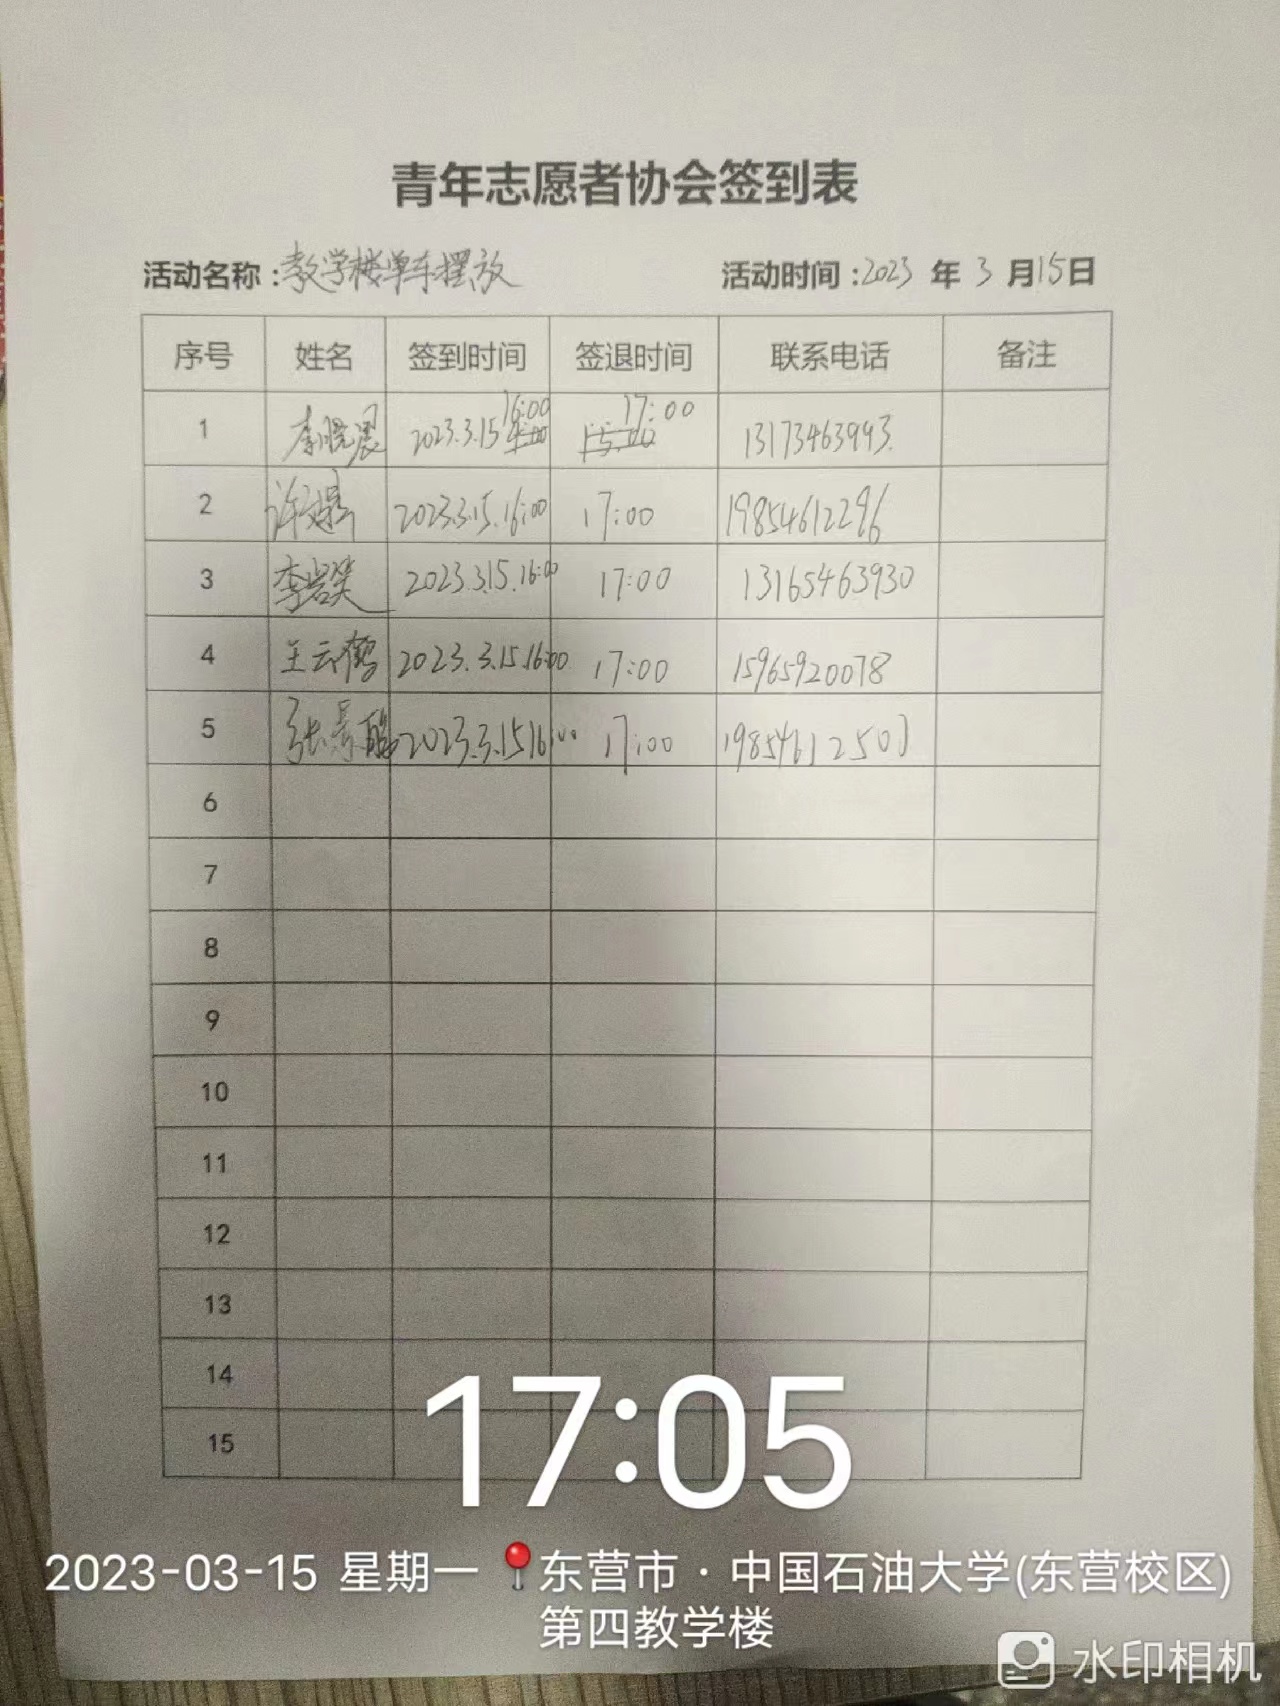 青年志愿者协会签到表
活动名称:教学楼单车摆放 活动时间:2023年3月15日
序号 姓名 签到时间 签退时间 联系电话 备注
1 李晓晨 2023.3.15 16:00 17:00 13173463993
2 许 2023.3.15.16:00 17:00 19854612296
3 李岩笑 2023.3.15.16:00 17:00 13165463930
4 王云鹤 2023.3.15.16:00 17:00 15965920078
5 张景 2023.3.15 16:00 17:00 19854612507
6
7
8
9
10
11
12
13
14
15
17:05
2023-03-15 星期一 东营市·中国石油大学(东营校区)
第四教学楼
水印相机